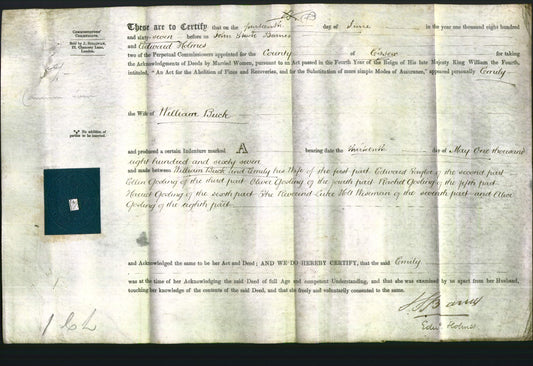 COMMISSIONERS' CERTIFICATE.
Sold by
Chancery Lane,
London.
These are to Certify that on the day of June in the year one thousand eight hundred
and sixty seven before us John Barnes
and Edward Holmes
two of the Perpetual Commissioners appointed for the County of Essex for taking
the Acknowledgments of Deeds by Married Women, pursuant to an Act passed in the Fourth Year of the Reign of His late Majesty King William the Fourth,
intituled, "An Act for the Abolition of Fines and Recoveries, and for the Substitution of more simple Modes of Assurance," appeared personally Emily
the Wife of William Buck
No addition of parties to be inserted.
and produced a certain Indenture marked A bearing date the thirteenth day of May One thousand
eight hundred and sixty seven
and made between William Buck and Emily his Wife of the first part Edward of the second part
Ellen Gosling of the third part Oliver Gosling of the fourth part Gosling of the fifth part
Harriet Gosling of the sixth part The Reverend Luke of the seventh part and Oliver
Gosling of the eighth part
and Acknowledged the same to be her Act and Deed; AND WE DO HEREBY CERTIFY, that the said Emily
was at the time of her Acknowledging the said Deed of full Age and competent Understanding, and that she was examined by us apart from her Husband,
touching her knowledge of the contents of the said Deed, and that she freely and voluntarily consented to the same.
Edwd Holmes